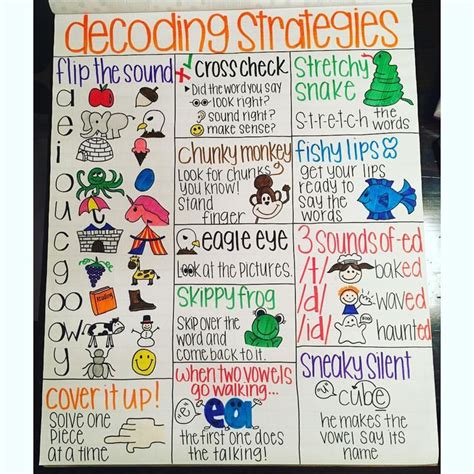 decoding strategies
flip the sound
a
e
i
o
u
c
g
oo
reading
ow
y
cross check
Did the word you say
look right?
sound right?
make sense?
Stretchy
snake
S-t-r-e-t-c-h the
words
Chunky monkey
Look for chunks
you know!
Stand
finger
fishy lips
get your lips
ready to
say the
words
eagle eye
Look at the pictures.
3 sounds of -ed
/t/ baked
/d/ waved
/id/ haunted
Skippy frog
Skip over the
word and
come back to it.
cover it up!
solve one
piece
at a time
when two vowels
go walking...
ea
the first one does
the talking!
Sneaky Silent
cube
he makes the
vowel say its
name